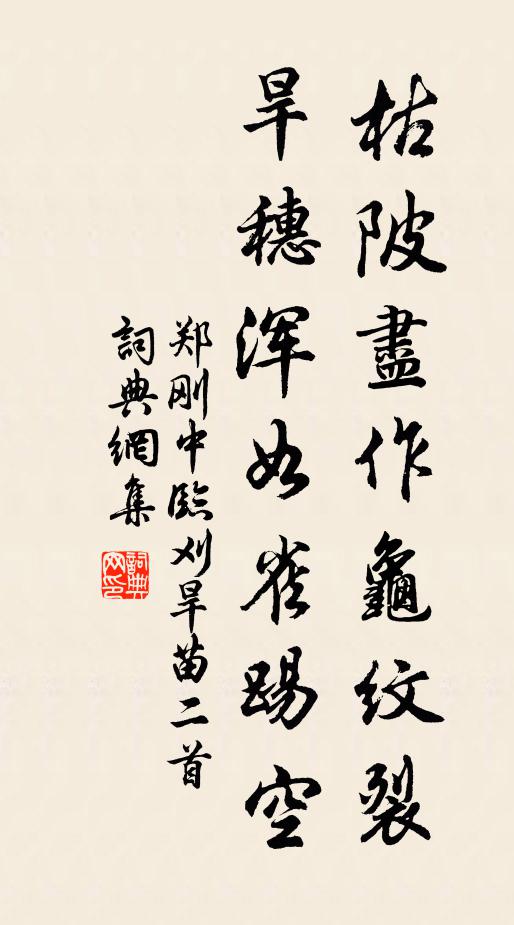 枯陂盡作龜紋裂
旱穗浑如雀踢空
郑刚中臨刈旱苗二首
詞典網集
詞典网印